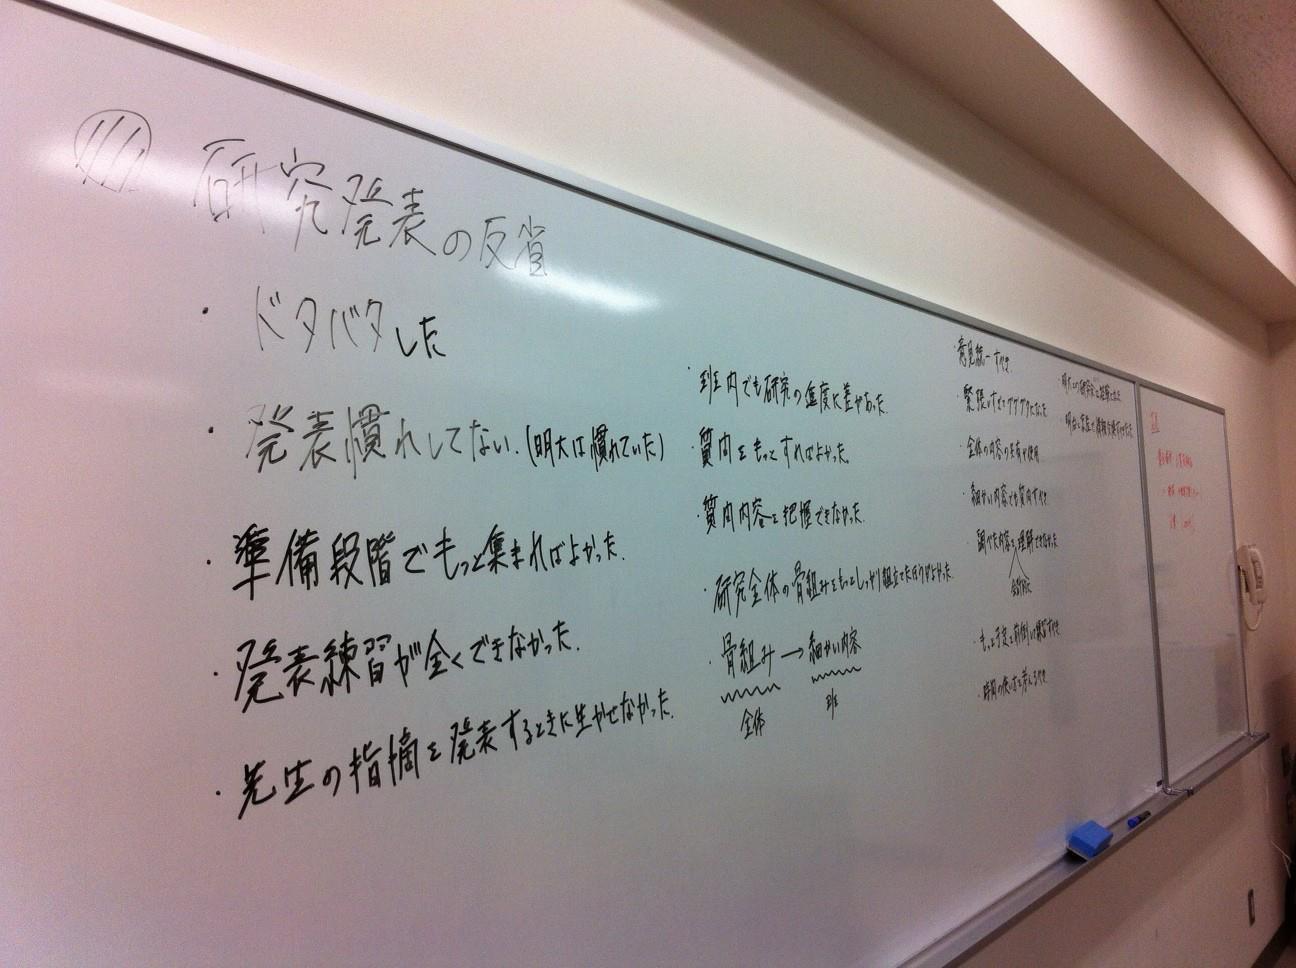 研究発表の反省
・ドタバタした
・発表慣れしてない.(明大は慣れていた)
・準備段階でもっと集まればよかった.
・発表練習が全くできなかった.
・先生の指摘を発表するときに生かせなかった.
・班内でも研究の進度に差があった.
・質問をもっとすればよかった.
・質問内容を把握できなかった.
・研究全体の骨組みをもっとしっかり組立てたほうがよかった.
・骨組み→細かい内容
全体 班
・意見統一すべき
・緊張しすぎてグダグダになった
・全体の内容の共有
・細かい内容でも質問すべき
・調べた内容を理解できなかった
・もっと予定を前倒して練習すべき
・時間の使い方を考えるべき